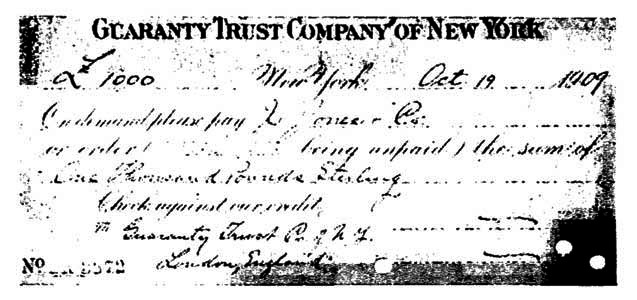 GUARANTY TRUST COMPANY OF NEW YORK
£ 1000 New York Oct 19 1909
On demand please pay Jones & Co.
or order ( being unpaid ) the sum of
One Thousand Pounds Sterling
Check against our credit
To Guaranty Trust Co. of N. Y.
No 2372 London, England.